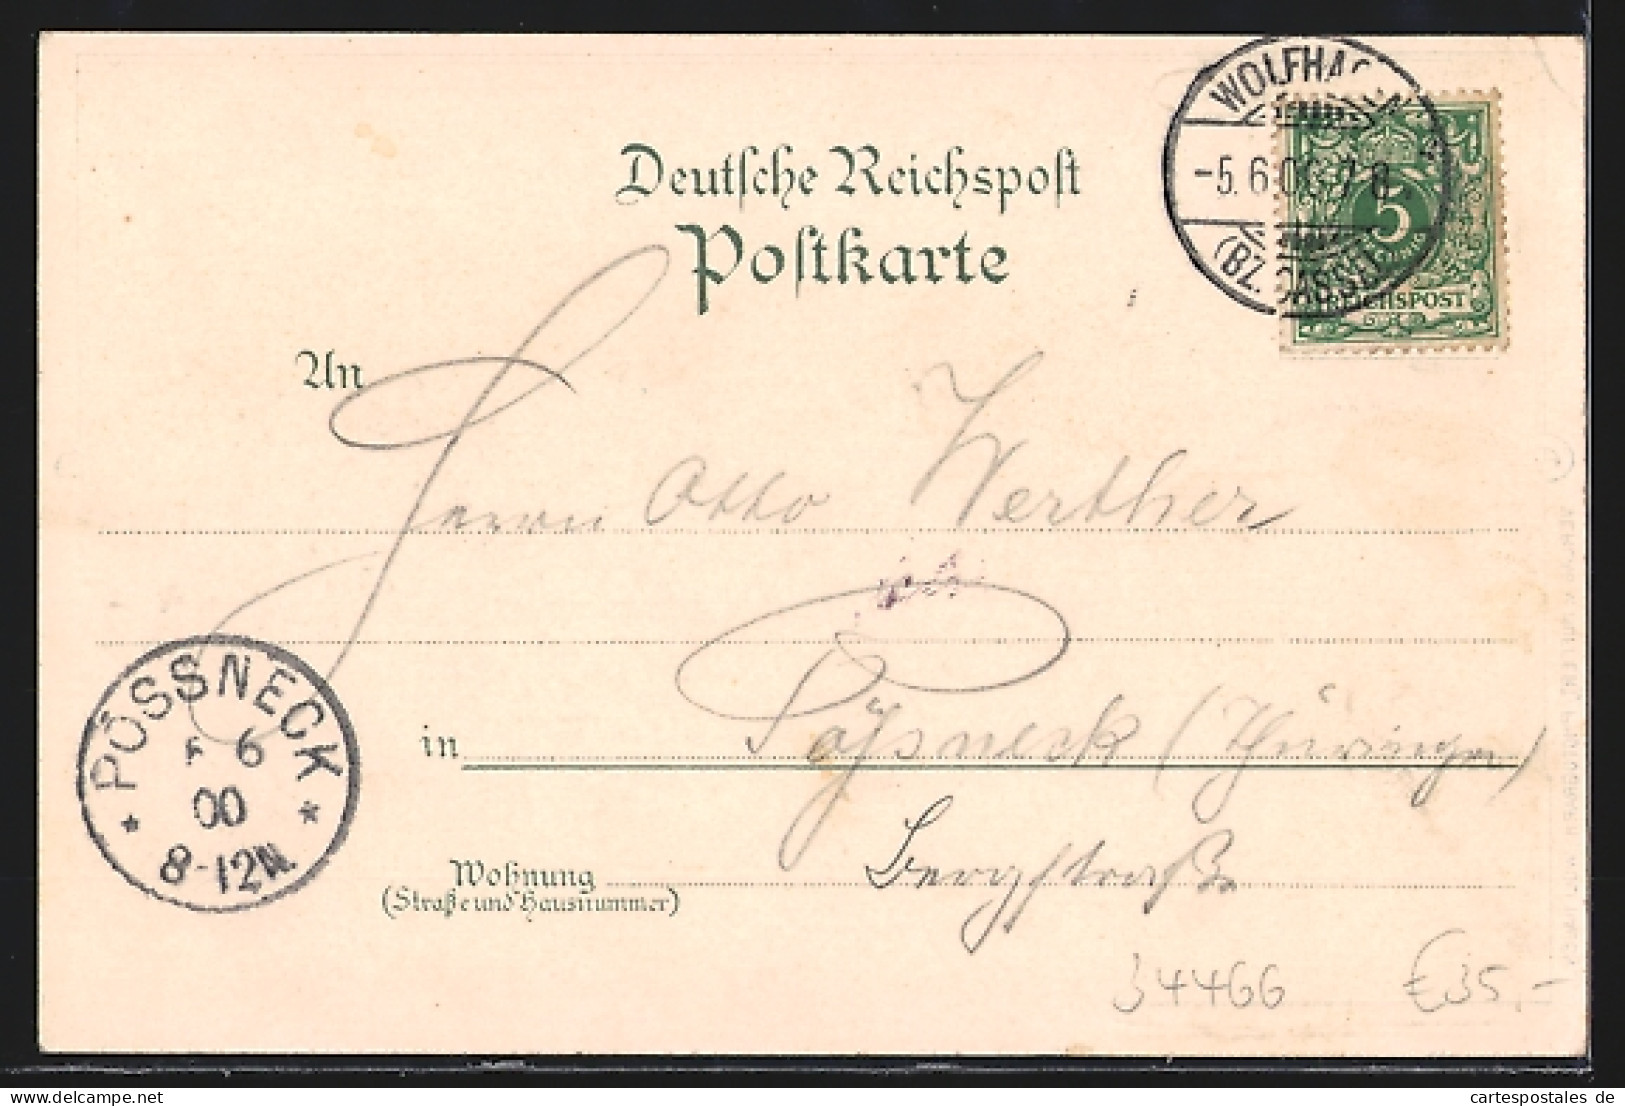 Deutsche Reichspost
Postkarte
WOLFHAGEN
-5.6.00 7-8
(BZ. CASSEL)
5
REICHSPOST
An
Herrn Otto Werther
in Pößneck (Thüringen)
PÖSSNECK
6
00
8-12N.
Wohnung Bergstraße
(Straße und Hausnummer)
34466 €35,-
cartespostales de